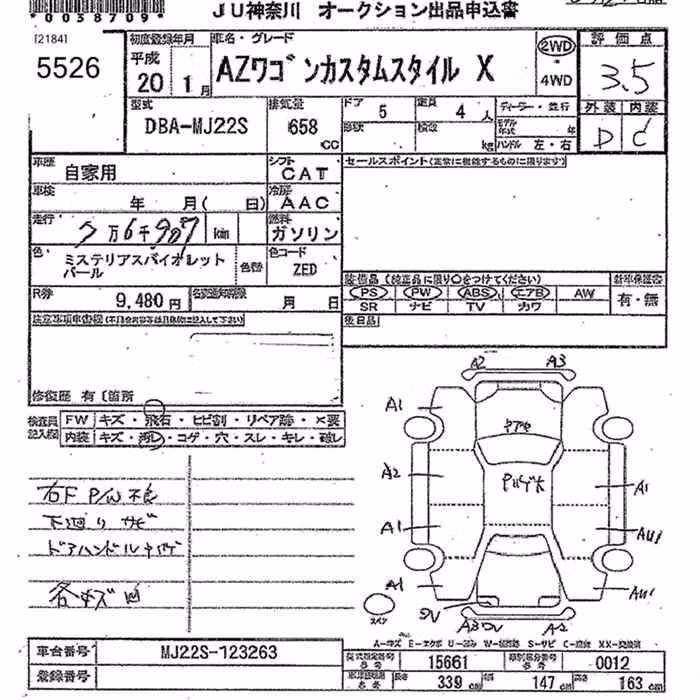 *0038709*
JU神奈川 オークション出品申込書
[2184]
5526
初度登録年月
平成
20 1月
車名・グレード
AZワゴンカスタムスタイル X
2WD
4WD
評価点
3.5
型式
DBA-MJ22S
排気量
658 CC
ドア 5
定員 4 人
ディーラー・並行
年
kg
ハンドル 左・右
外装 内装
D C
車歴
自家用
シフト
CAT
セールスポイント(正常に機能するものに限ります)
車検
年 月( 日)
冷房
AAC
走行
7万6千907 km
燃料
ガソリン
色
ミステリアスバイオレット
パール
色替
色コード
ZED
装備品(純正品に限り○をつけてください)
PS PW ABS エアB AW
SR ナビ TV カワ
新車保証書
有・無
R券
9,480円
名変通知期限
月 日
後日品
修復歴 有〔箇所
検査員
記入欄
FW キズ・飛石・ヒビ割・リペア跡・×要
内装 キズ・汚レ・コゲ・穴・スレ・キレ・破レ
右F P/W不良
下廻りサビ
各キズ凹
A2 A3
A1
A2
A1
A1
A1
AU1
AU1
A3 A2
車台番号
MJ22S-123263
登録番号
15661
0012
339 cm
147 cm
高さ 163 cm